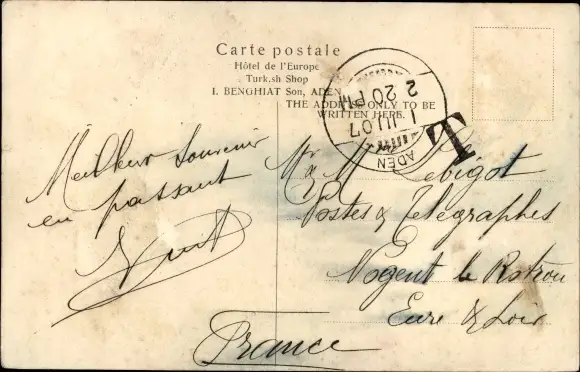 Carte postale
Hôtel de l'Europe
Turk.sh Shop
I. BENGHIAT Son, ADEN
THE ADDRESS ONLY TO BE
WRITTEN HERE.
ADEN
2 20 PM
1 JU 07
T
Meilleur souvenir
en passant
Mr & Me Lebigot
Postes & Télégraphes
Nogent le Rotrou
Eure & Loir
France